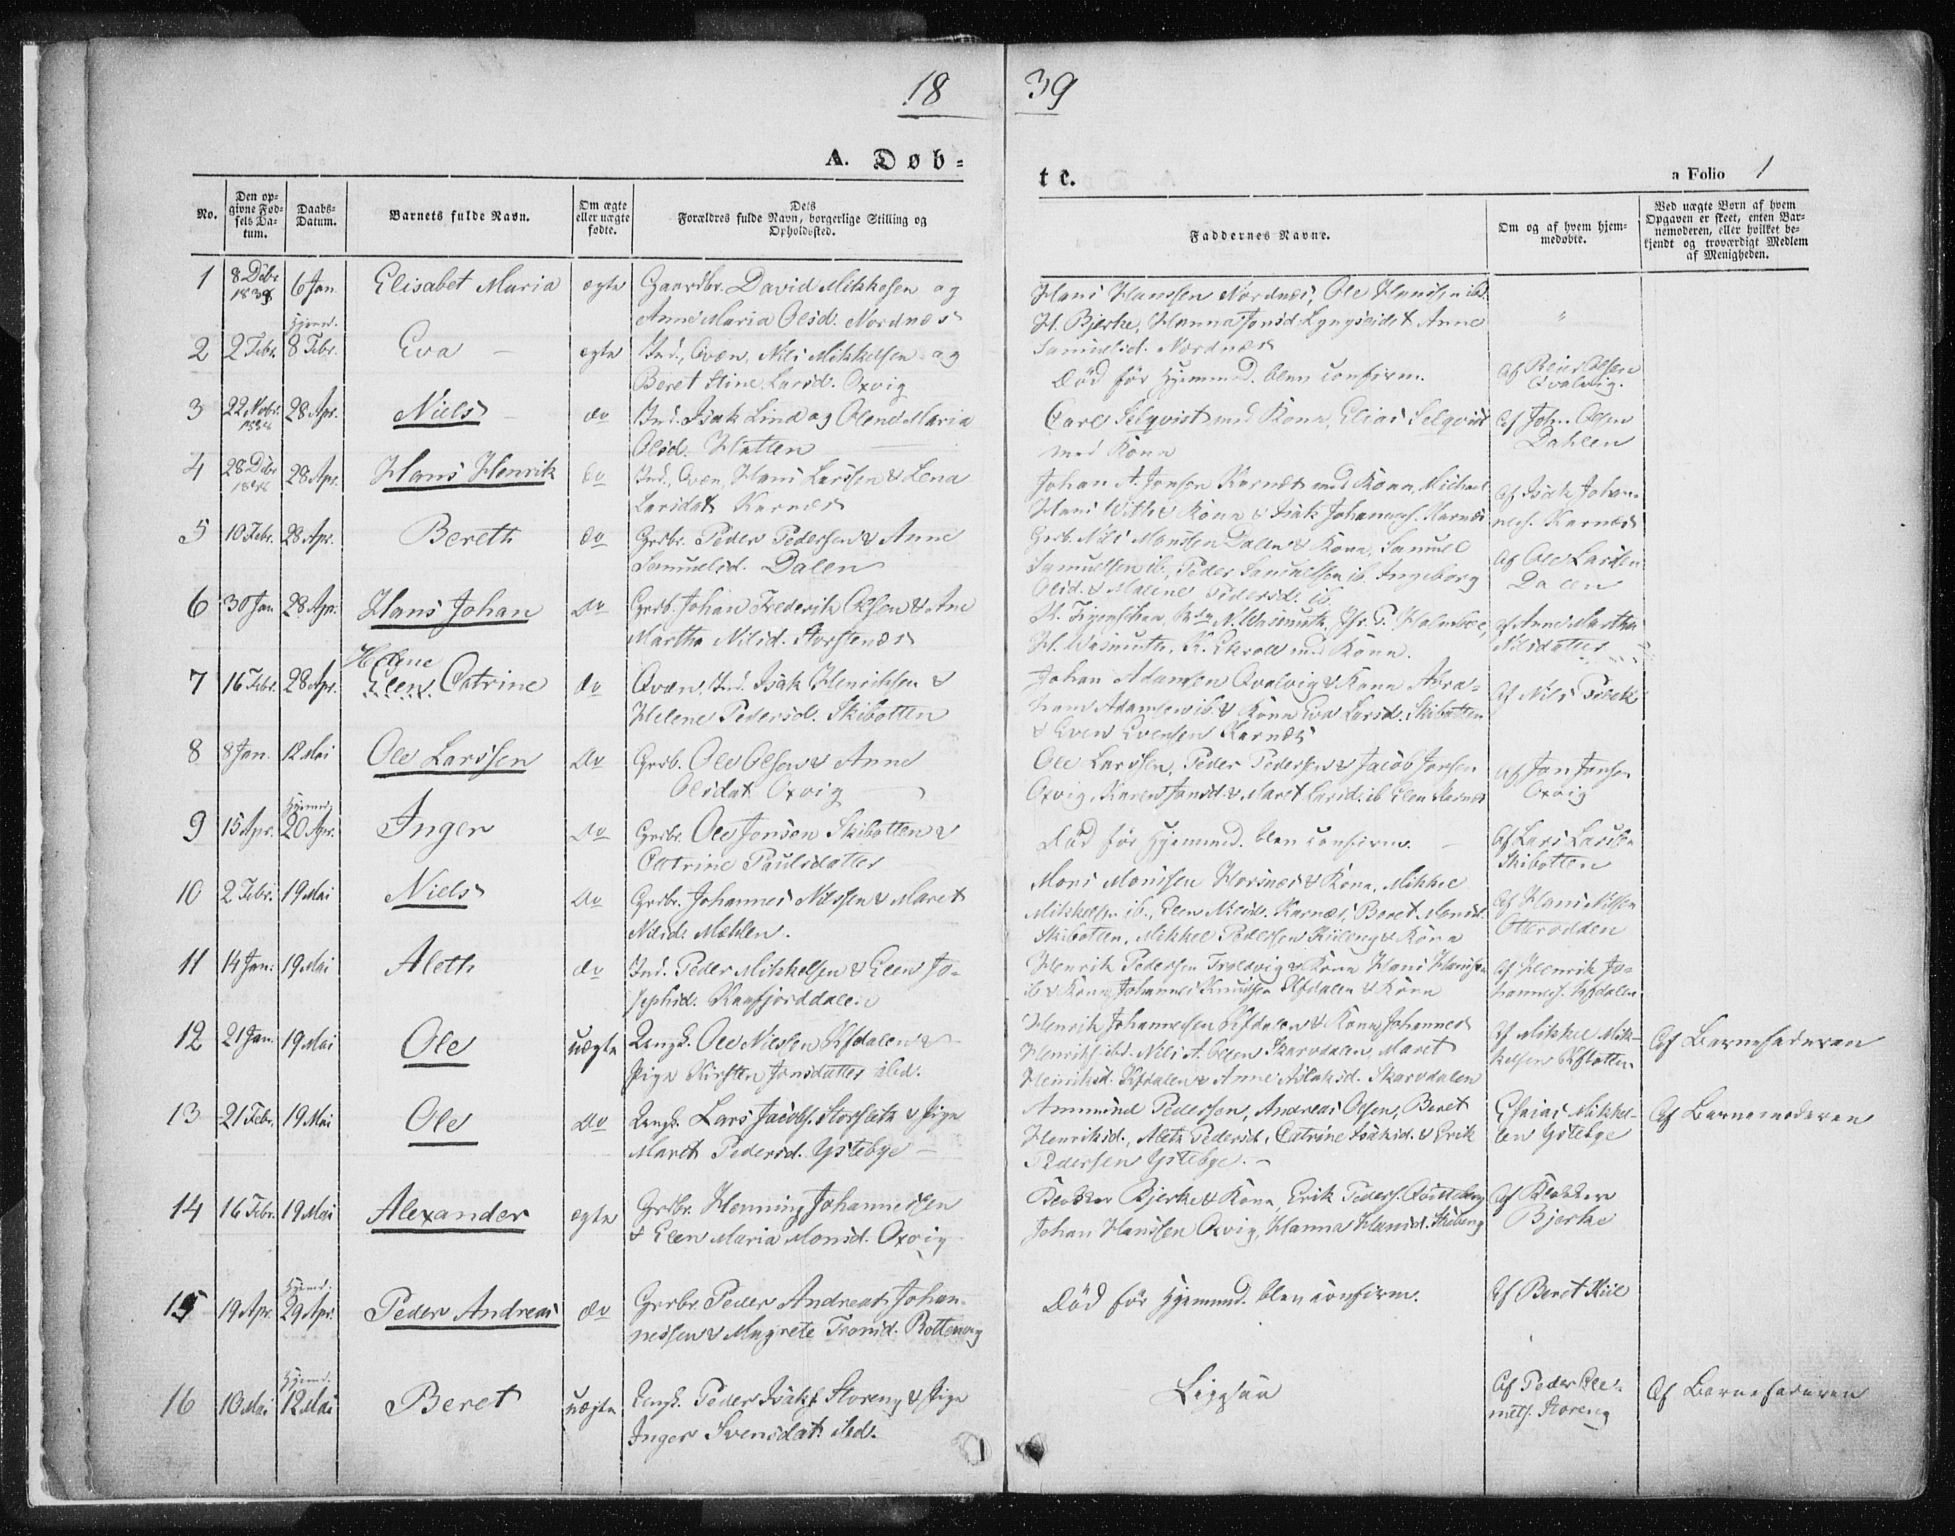 18 39
A. Døb=
te.
a Folio 1
No.
Den opgivne Fødsels Datum.
Daabs-Datum.
Barnets fulde Navn.
Om ægte eller uægte fødte.
Dets Forældres fulde Navn, borgerlige Stilling og Opholdssted.
Faddernes Navne.
Om og af hvem hjemmedøbte.
Ved uægte Børn af hvem Opgaven er skeet, enten Barnemoderen, eller hvilket bekjendt og troværdigt Medlem af Menigheden.
1 8 Debr 1838 6 Jan. Elisabet Maria ægte Gaardbr. David Mikkelsen og
Anne Maria Olsd. Nordnæs
Hans Hanssen Nordnæs, Ole Hanssen ibd.
H. Bjerke, Hanna Jonsd. Lyngseidet Anne
Samuelsd. Nordnæs
2 2 Febr. Hjemd. 8 Febr. Eva – ægte Ind., Qvæn, Nils Mikkelsen og
Beret Stine Larsd. Oxvig
Død før Hjemmed. blev confirm.
Af Olsen
Qvalvig.
3 22 Novbr. 1838 28 Apr. Niels do Ind. Isak Lind og Olene Maria
Olsd. Hatten
Carl Selqvist med Kone, Elias Selqvist
med Kone
Af John Olsen
Dahlen
4 28 Debr 1838 28 Apr. Hans Henrik do Ind., Qvæn, Hans Larssen & Lena
Larsdat. Karnæs
Johan A. Jonsen Karnæs med Kone, Michael
Hans With & Kone & Isak Johannes. Karnæs
Af Isak Johan-
nes. Karnæs
5 10 Febr. 28 Apr. Bereth do Grdbr. Peder Pedersen & Anne
Samuelsd. Dalen
Grdb. Nils Monssen Dalen & Kone, Samuel
Samuelsen ib., Peder Samuelssen ib. Ingeborg
Olsd. & Malene Pedersd. ib.
Af Ole Larsen
Dalen
6 30 Jan. 28 Apr. Hans Johan do Grdb. Johan Frederik Olsen & Ane
Martha Nilsd. Storstenæs
N. Wasmuth, P. Holmboe,
H. Wasmuth, K. Ekroll med Kone.
af Anne Martha
Nilsdatter
7 16 Febr. 28 Apr. Helene Elen Catrine do Qvæn, Ind. Isak Henrichsen &
Helene Pedersd. Skibotten
Johan Adamsen Qvalvig & Kone Abra-
ham Adamsen ib. & Kone Eva Larsd. Skibotten
& Even Evensen Karnæs
Af Nils
8 8 Jan. 12 Mai Ole Larssen do Grdb. Ole Olsen & Anne
Olsdat. Oxvig
Ole Larssen, Peder Pedersen & Jacob Jonsen
Oxvig, Karen Jonsd. & Maret Larsd. ib Elen Karnæs
Af Jon Jonsen
Oxvig
9 15 Apr. Hjemd. 20 Apr. Inger do Grdbr. Ole Jonsen Skibotten &
Cattrine Paulsdatter
Død før Hjemmed. blev confirm. –
Af Lars Larsen
Skibotten
10 2 Febr. 19 Mai Niels do Grdbr. Johannes Nilssen & Maret
Nilsd. Mælen.
Mons Monssen Horsnæs & Kone, Mikkel
Mikkelsen ib., Elen Nilsd. Karnæs, Beret Monsd.
Skibotten, Mikkel Pedersen & Kone
Af Hans Nilsen
Otterodden
11 14 Jan. 19 Mai Aleth do Ind. Peder Mikkelsen & Elen Jo-
sephsd. Kaafjorddalen
Henrik Pedersen Troldvig & Kone Hans Hansen
ib & Kone, Johannes Knudsen Kfdalen & Kone
Af Henrik Jo-
hannes. Kfdalen.
12 21 Jan. 19 Mai Ole uægte Ungk. Ole Nielsen Kfdalen &
Pige Kirsten Jonsdatter ibid.
Henrik Johannesen Kfdalen & Kone, Johannes
Henriks. ibd. Nils A. Olsen Skarvdalen, Maret
Henriksd. Kfdalen & Anne Aslaksd. Skarvdalen
Af Mikkel Mik-
kelsen Kfbotten.
Af Barnefaderen
13 21 Febr. 19 Mai Ole do Ungk. Lars Jacobs. Storslett & Pige
Maret Pedersd. Ystebye –
Ammund Pedersen, Andreas Olsen, Beret
Henriksd., Aleth Pedersd., Catrine Isaksd. & Erik
Pedersen Ystebye. –
Esaias Mikkel-
sen Ystebye
Af Barnemoderen
14 16 Febr. 19 Mai Alexander ægte Grdbr. Henning Johannessen
& Elen Maria Monsd. Oxvig
Klokker Bjerke & Kone, Erik Peders.
Johan Hanssen Oxvig, Hanna Hansd.
Af Klokker
Bjerke
15 19 Apr. Hjemd. 29 Apr. Peder Andreas do Grdbr. Peder Andreas Johan-
nessen & Magrete Tronsd. Rottenvig
Død før Hjemmed. blev confirm.
Af Beret Kiil
16 10 Mai Hjemd. 12 Mai Beret uægte Ungk. Peder Isaks. Storeng & Pige
Inger Svensdat. ibid.
Ligesaa
Af Peder Cle-
mets. Storeng
Af Barnefaderen
1